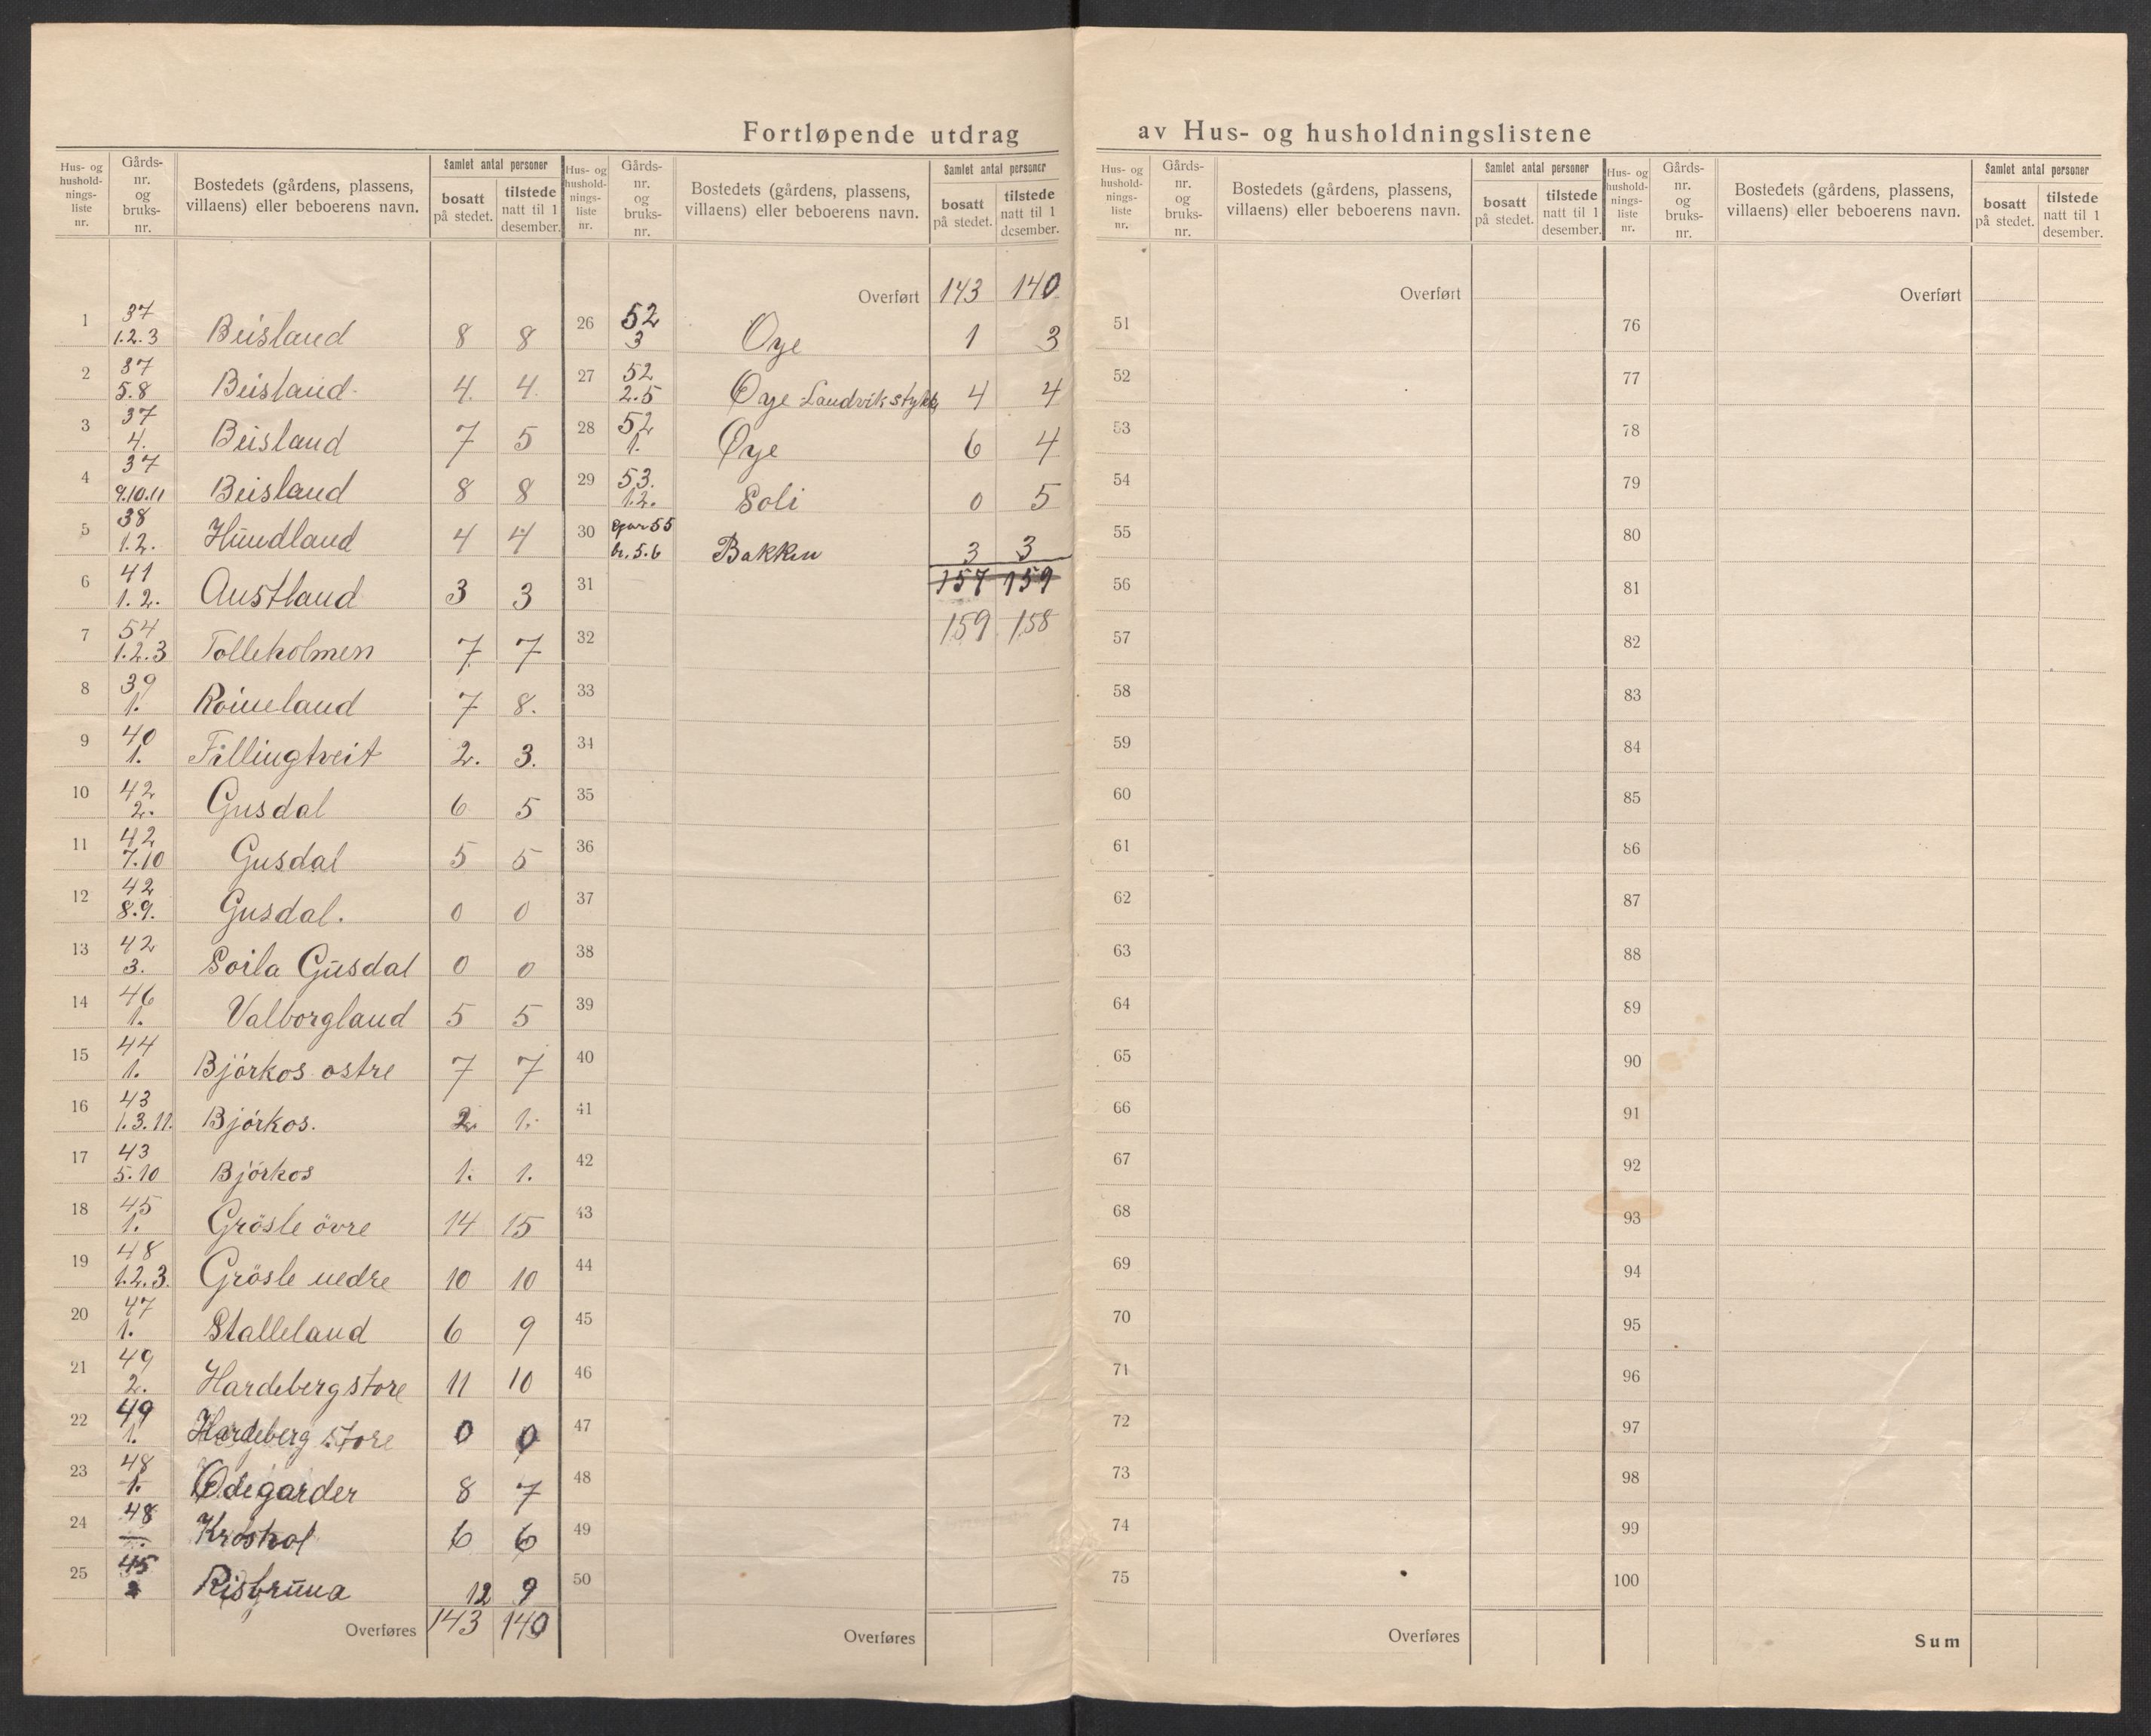 Fortløpende utdrag av Hus- og husholdningslistene
Hus- og husholdnings-liste nr. | Gårds-nr. og bruks-nr. | Bostedets (gårdens, plassens, villaens) eller beboerens navn. | Samlet antal personer | bosatt på stedet. | tilstede natt til 1 desember.
1 | 37 1.2.3 | Beisland | 8 | 8
2 | 37 5.8 | Beisland. | 4. | 4.
3 | 37 4. | Beisland | 7 | 5
4 | 37 9.10.11 | Beisland | 8 | 8
5 | 38 1.2. | Hundland | 4 | 4
6 | 41 1.2. | Austland | 3 | 3
7 | 54 1.2.3 | Tolleholmen | 7 | 7
8 | 39 1. | Roineland | 7 | 8.
9 | 40 1. | Fillingtveit | 2. | 3.
10 | 42 2. | Gusdal | 6 | 5
11 | 42 7.10 | Gusdal | 5 | 5
12 | 42 8.9. | Gusdal. | 0 | 0
13 | 42 3. | Soila Gusdal | 0 | 0
14 | 46 1. | Valborgland | 5 | 5
15 | 44 1. | Björkos ostre | 7 | 7
16 | 43 1.3.11. | Björkos. | 2. | 1.
17 | 43 5.10 | Björkos | 1. | 1.
18 | 45 1. | Grösle övre | 14 | 15
19 | 48 1.2.3. | Grösle nedre | 10 | 10
20 | 47 1. | Stalleland | 6 | 9
21 | 49 2. | Hardeberg store | 11 | 10
22 | 49 1. | Hardeberg store | 0 | 0
23 | 48 1. | Ødegarder | 8 | 7
24 | 48 | Kroshol | 6 | 6
25 | 45 | Risbruna | 12 | 9
Overføres | 143 | 140
Hus- og husholdnings-liste nr. | Gårds-nr. og bruks-nr. | Bostedets (gårdens, plassens, villaens) eller beboerens navn. | Samlet antal personer | bosatt på stedet. | tilstede natt til 1 desember.
Overført | 143 | 140
26 | 52 3 | Oye | 1 | 3
27 | 52 2.5 | Øye Landvikstykk | 4 | 4
28 | 52 1. | Øye | 6 | 4
29 | 53. 1.2. | Soli | 0 | 5
30 | 55 br. 5.6 | Bakken | 3 | 3
31 | 157 | 159
32 | 159 | 158
33
34
35
36
37
38
39
40
41
42
43
44
45
46
47
48
49
50
Overføres
Hus- og husholdnings-liste nr. | Gårds-nr. og bruks-nr. | Bostedets (gårdens, plassens, villaens) eller beboerens navn. | Samlet antal personer | bosatt på stedet. | tilstede natt til 1 desember.
Overført
51
52
53
54
55
56
57
58
59
60
61
62
63
64
65
66
67
68
69
70
71
72
73
74
75
Overføres
Hus- og husholdnings-liste nr. | Gårds-nr. og bruks-nr. | Bostedets (gårdens, plassens, villaens) eller beboerens navn. | Samlet antal personer | bosatt på stedet. | tilstede natt til 1 desember.
Overført
76
77
78
79
80
81
82
83
84
85
86
87
88
89
90
91
92
93
94
95
96
97
98
99
100
Sum